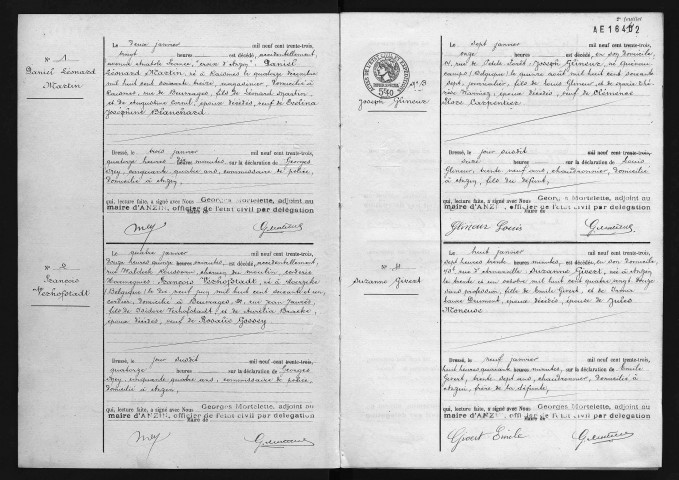 N° 1
Daniel Léonard
Martin
Le deux janvier mil neuf cent trente-trois,
vingt heures est décédé, accidentellement,
avenue Anatole France, "croix d'Anzin", Daniel
Léonard Martin, né à Raismes le quatorze
mil huit cent soixante treize, magasinier, domicilié à
Raismes, rue de Beuvrages, fils de Léonard Martin
et de Augustine, époux décédés, veuf de Evelina
Joséphine Blanchard
Dressé, le trois janvier mil neuf cent trente-trois,
quatorze heures minutes, sur la déclaration de Georges
Mey, cinquante quatre ans, commissaire de police,
domicilié à Anzin,
qui, lecture faite, a signé avec Nous Georges Mortelette, adjoint au
maire d'ANZIN, officier de l'état civil par délégation
Maire de
Mey
N° 2
François
Verhofstadt
Le quatre janvier mil neuf cent trente-trois,
douze heures quinze minutes, est décédé, accidentellement,
rue Waldeck Rousseau, chemin du moulin,
François Verhofstadt, né à
(Belgique) le dix neuf juin mil huit cent soixante et un,
cordier, domicilié à Beuvrages, rue Jean Jaurès,
fils de Isidore Verhofstadt et de Aurélia
époux décédés, veuf de Rosalie Gossey
Dressé, le jour susdit mil neuf cent trente-trois,
quatorze heures minutes, sur la déclaration de Georges
Mey, cinquante quatre ans, commissaire de police,
domicilié à Anzin,
qui, lecture faite, a signé avec Nous Georges Mortelette, adjoint au
maire d'ANZIN, officier de l'état civil par délégation
Maire de
Mey
2e feuillet
AE 16402
N° 3
Joseph Glineur
Le sept janvier mil neuf cent trente-trois,
onze heures est décédé, en son domicile,
rue de, Joseph Glineur, né à
(Belgique) le quinze août mil huit cent soixante
sept, journalier, fils de Louis Glineur, et de
époux décédés, veuf de Clémence
Carpentier
Dressé, le jour susdit mil neuf cent trente-trois,
onze heures sur la déclaration de Louis
Glineur, trente neuf ans, chaudronnier, domicilié
à Anzin, fils du défunt,
qui, lecture faite, a signé avec Nous Georges Mortelette, adjoint au
maire d'ANZIN, officier de l'état civil par délégation
Maire de
Glineur Louis
N° 4
Suzanne Givert
Le huit janvier mil neuf cent trente-trois,
sept heures trente minutes, est décédée, en son domicile,
Suzanne Givert, née à Anzin
le trente et un octobre mil huit cent quatre vingt
sans profession, fille de Emile Givert, et de
Dumont, époux décédés, épouse de Jules
Moneuse
Dressé, le neuf janvier mil neuf cent trente-trois,
huit heures quarante minutes, sur la déclaration de Emile
Givert, trente sept ans, chaudronnier, domicilié à
Anzin, frère de la défunte,
qui, lecture faite, a signé avec Nous Georges Mortelette, adjoint au
maire d'ANZIN, officier de l'état civil par délégation
Maire de
Givert Emile